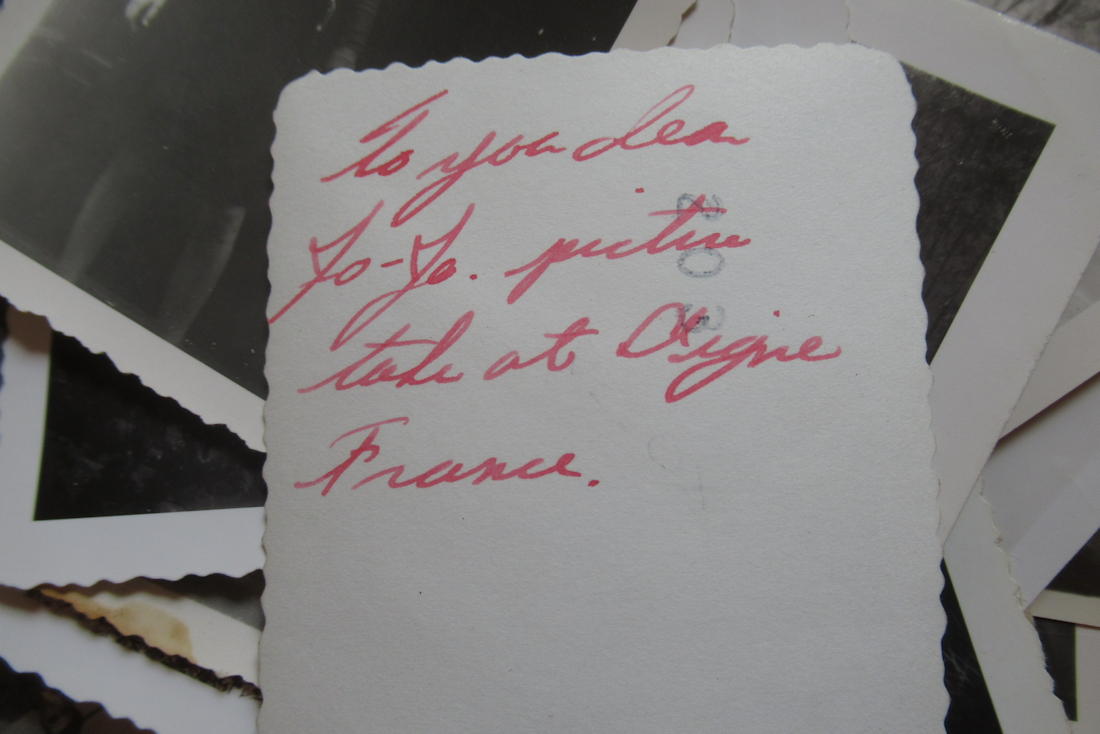 To you dear
Yo-Yo. picture
take at Digne
France.